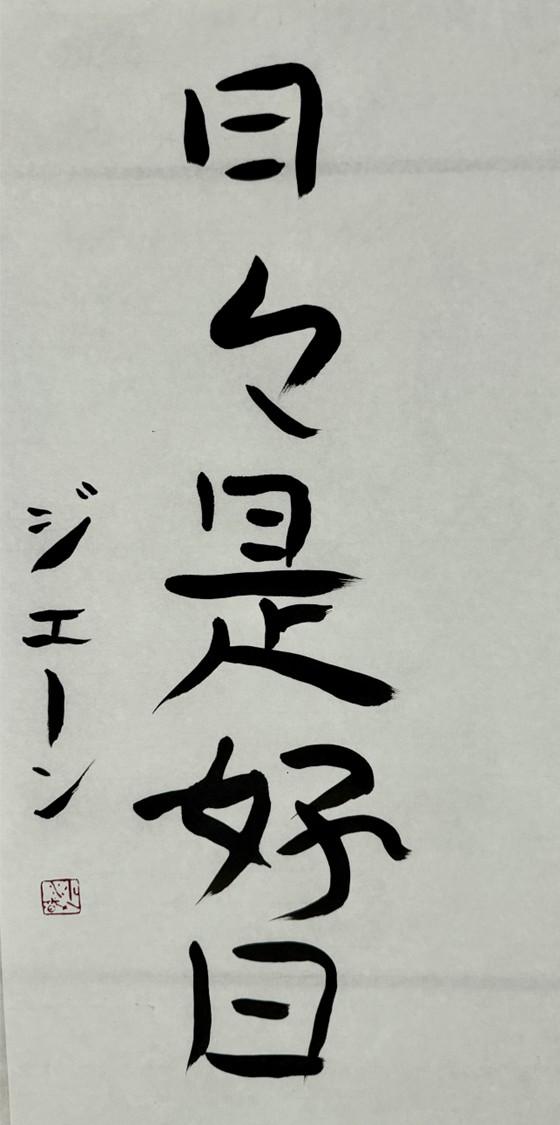 日々是好日
ジェーン